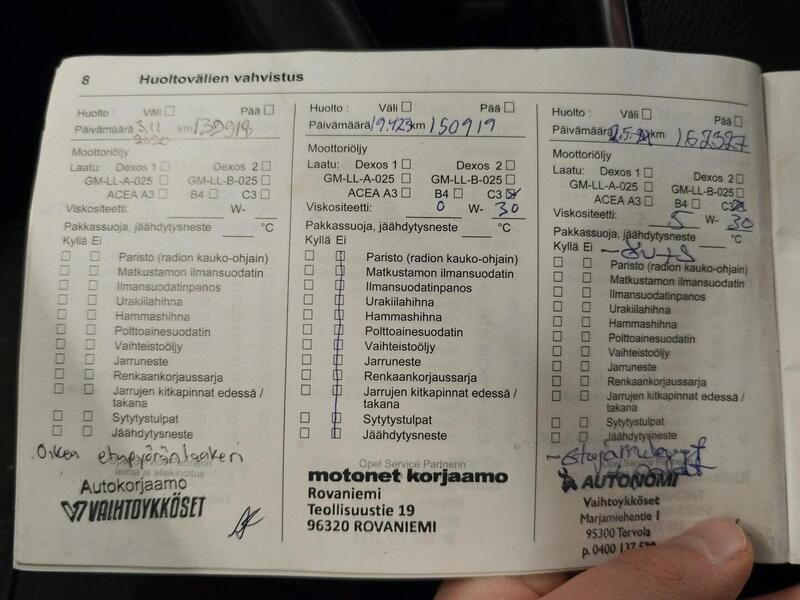 8 Huoltovälien vahvistus
Huolto: Väli ☐ Pää ☐
Päivämäärä 3.11 km 139918
2020
Moottoriöljy
Laatu: Dexos 1 ☐ Dexos 2 ☐
GM-LL-A-025 ☐ GM-LL-B-025 ☐
ACEA A3 ☐ B4 ☐ C3 ☐
Viskositeetti: W-
Pakkassuoja, jäähdytysneste °C
Kyllä Ei
☐ ☐ Paristo (radion kauko-ohjain)
☐ ☐ Matkustamon ilmansuodatin
☐ ☐ Ilmansuodatinpanos
☐ ☐ Urakiilahihna
☐ ☐ Hammashihna
☐ ☐ Polttoainesuodatin
☐ ☐ Vaihteistoöljy
☐ ☐ Jarruneste
☐ ☐ Renkaankorjaussarja
☐ ☐ Jarrujen kitkapinnat edessä /
takana
☐ ☐ Sytytystulpat
☐ ☐ Jäähdytysneste
Oikea etupyöränlaakeri
Opel Service Partnerin
leima ja allekirjoitus
Autokorjaamo
VAIHTOYKKÖSET
Huolto: Väli ☐ Pää ☐
Päivämäärä 19.4.23 km 150919
Moottoriöljy
Laatu: Dexos 1 ☐ Dexos 2 ☐
GM-LL-A-025 ☐ GM-LL-B-025 ☐
ACEA A3 ☐ B4 ☐ C3 ☒
Viskositeetti: 0 W- 30
Pakkassuoja, jäähdytysneste °C
Kyllä Ei
☐ ☐ Paristo (radion kauko-ohjain)
☐ ☐ Matkustamon ilmansuodatin
☐ ☐ Ilmansuodatinpanos
☐ ☐ Urakiilahihna
☐ ☐ Hammashihna
☐ ☐ Polttoainesuodatin
☐ ☐ Vaihteistoöljy
☐ ☐ Jarruneste
☐ ☐ Renkaankorjaussarja
☐ ☐ Jarrujen kitkapinnat edessä /
takana
☐ ☐ Sytytystulpat
☐ ☐ Jäähdytysneste
Opel Service Partnerin
motonet korjaamo
Rovaniemi
Teollisuustie 19
96320 ROVANIEMI
Huolto: Väli ☐ Pää ☐
Päivämäärä km 162327
Moottoriöljy
Laatu: Dexos 1 ☐ Dexos 2 ☐
GM-LL-A-025 ☐ GM-LL-B-025 ☐
ACEA A3 ☐ B4 ☐ C3 ☒
Viskositeetti: 5 W- 30
Pakkassuoja, jäähdytysneste °C
Kyllä Ei
☐ ☐ Paristo (radion kauko-ohjain)
☐ ☐ Matkustamon ilmansuodatin
☐ ☐ Ilmansuodatinpanos
☐ ☐ Urakiilahihna
☐ ☐ Hammashihna
☐ ☐ Polttoainesuodatin
☐ ☐ Vaihteistoöljy
☐ ☐ Jarruneste
☐ ☐ Renkaankorjaussarja
☐ ☐ Jarrujen kitkapinnat edessä /
takana
☐ ☐ Sytytystulpat
☐ ☐ Jäähdytysneste
Opel Service Partnerin
AUTONOMI
Vaihtoykköset
Marjamiehentie 1
95300 Tervola
p. 0400 137